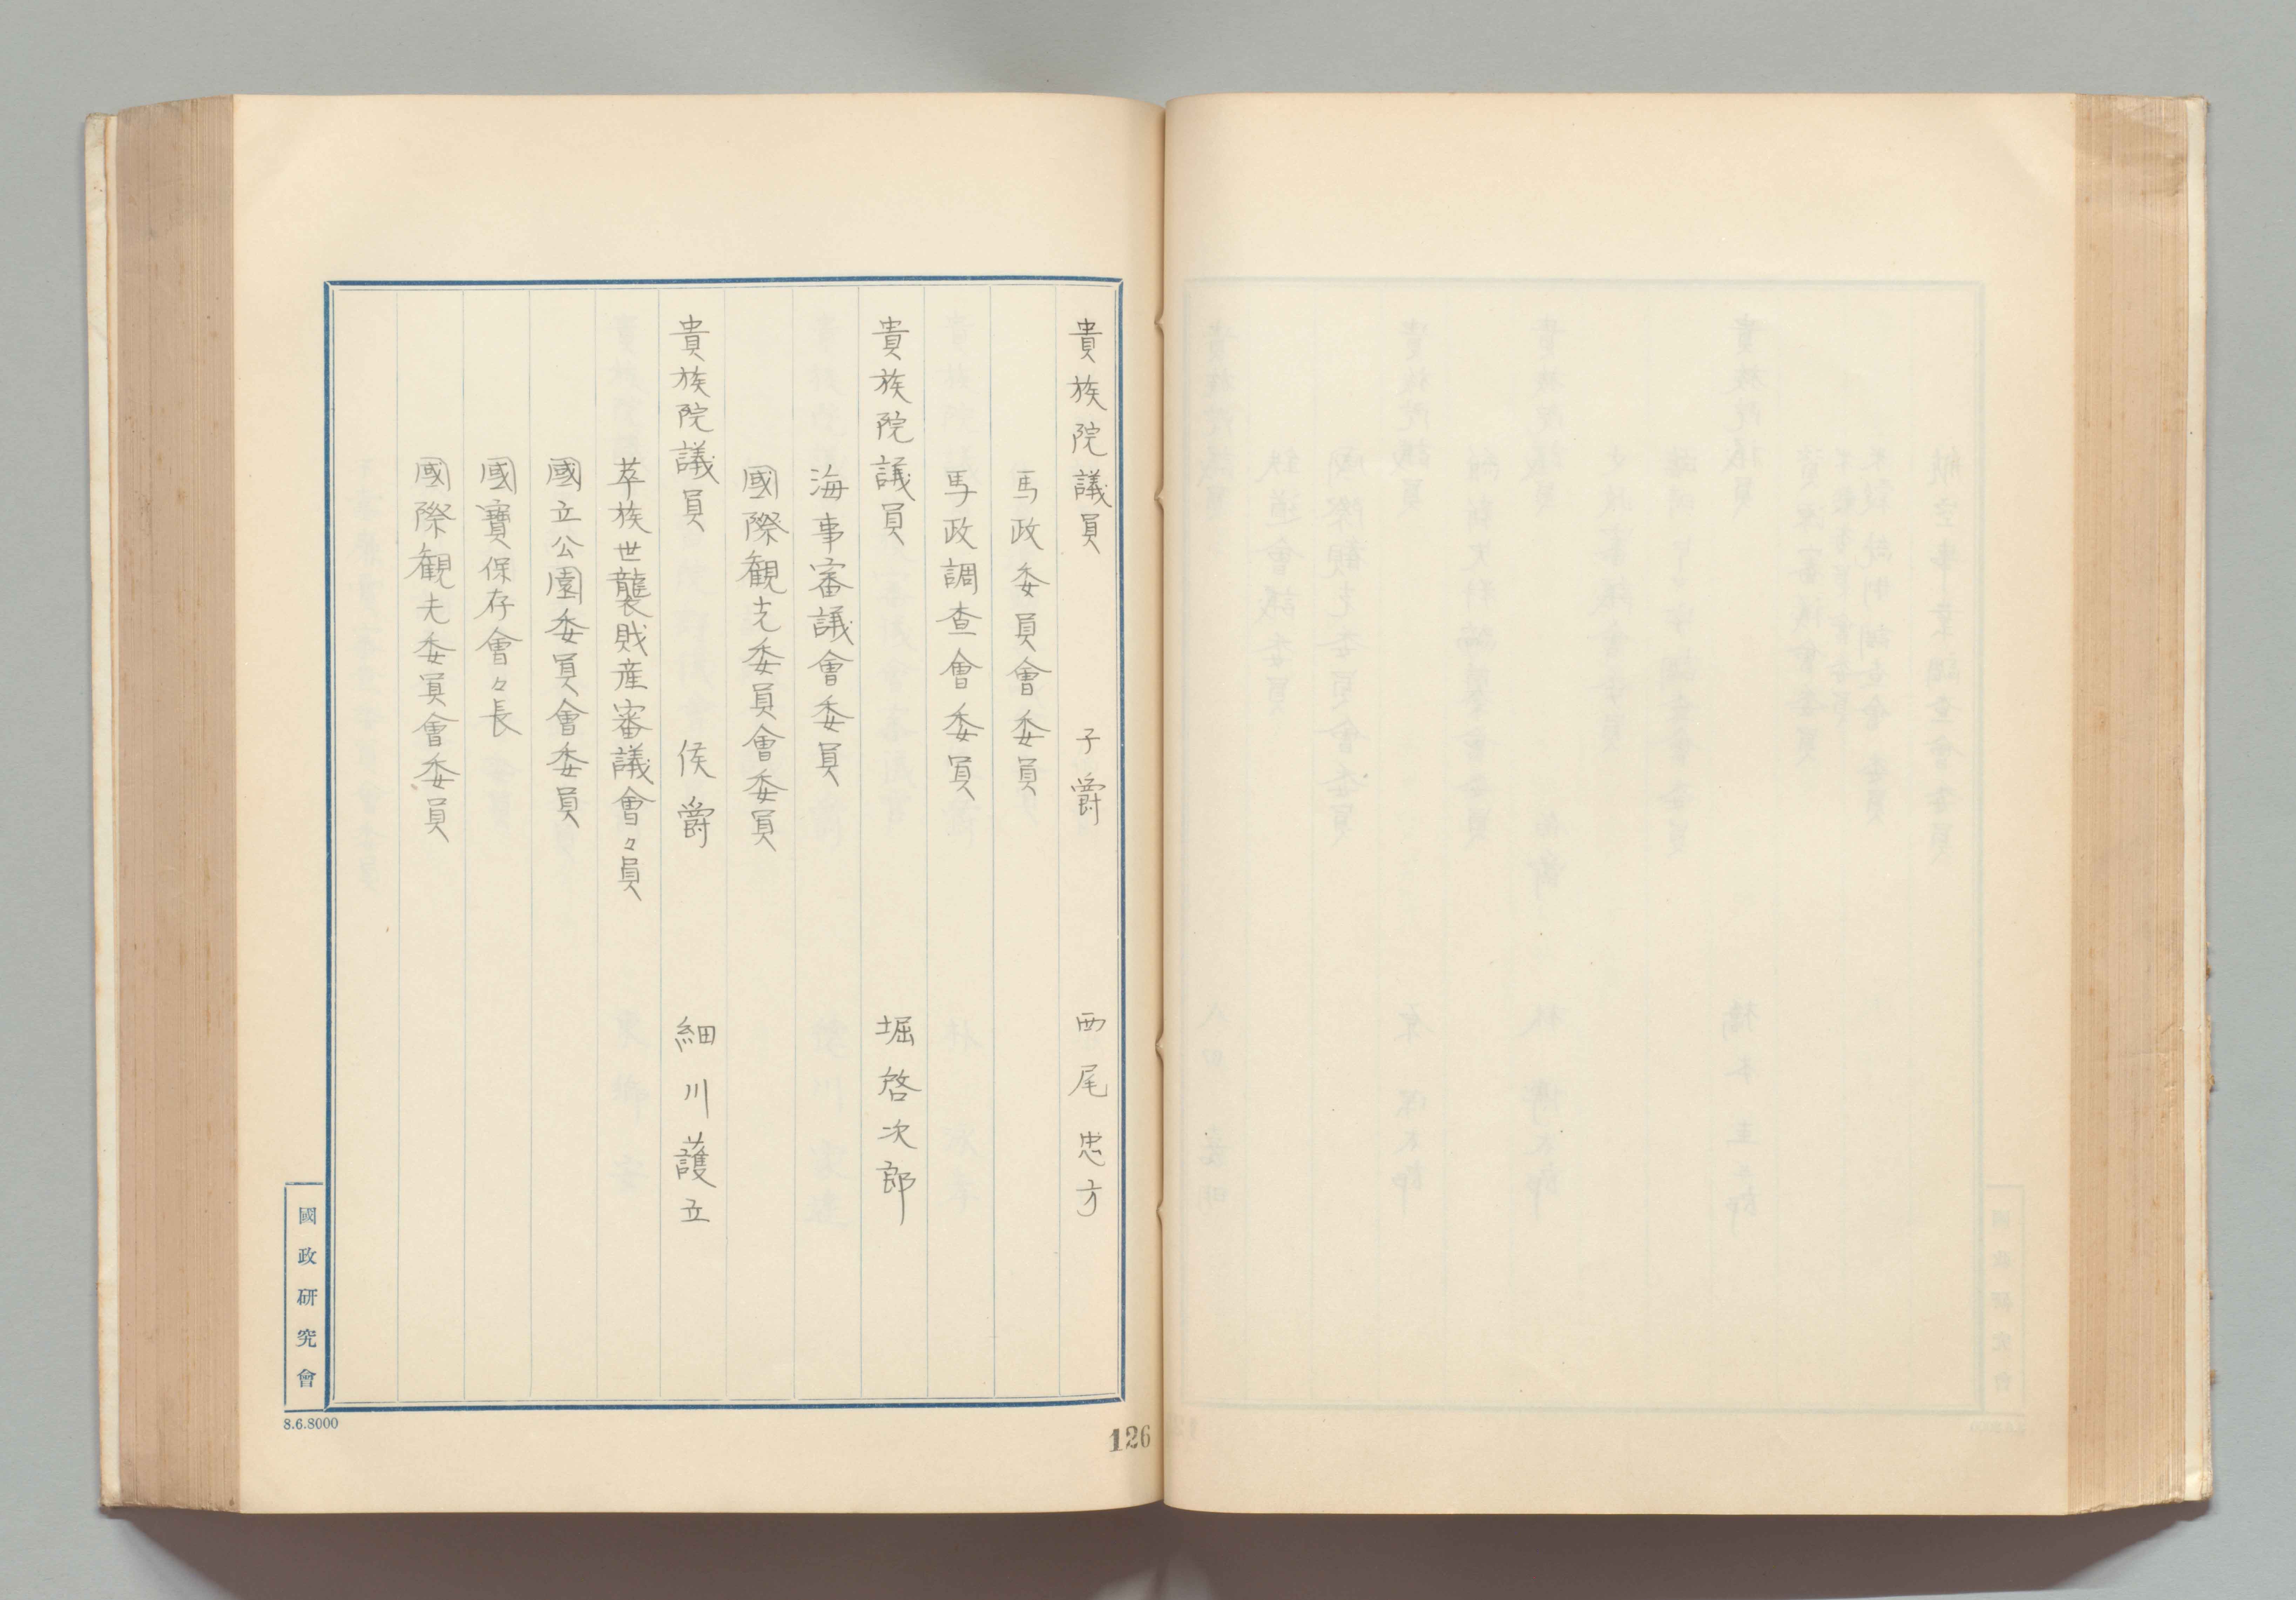 貴族院議員 子爵 西尾忠方
馬政委員會委員
馬政調査會委員
貴族院議員 堀啓次郎
海事審議會委員
國際観光委員會委員
貴族院議員 侯爵 細川護立
華族世襲財産審議會々員
國立公園委員會委員
國寶保存會々長
國際観光委員會委員
國政研究會
8.6.8000
126